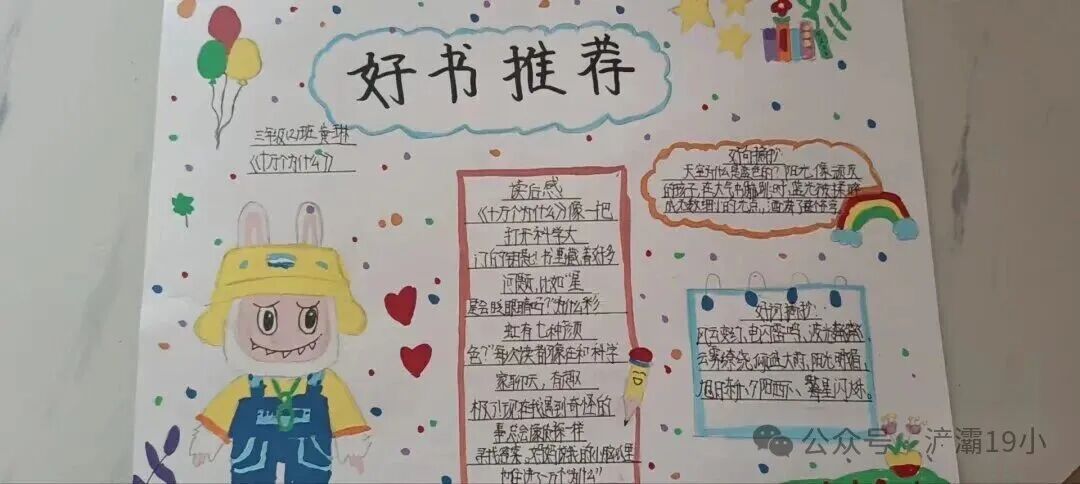 好书推荐
三年级(2)班 黄琳
《十万个为什么》
读后感
《十万个为什么》像一把
打开科学大
门的钥匙!书里藏着好多
问题,比如“星
星会眨眼睛吗?”“为什么彩
虹有七种颜
色?”每次读都像在和科学
家聊天,有趣
极了!现在我遇到奇怪的
事总会像书里一样
寻找答案,
好句摘抄
天空为什么是蓝色的?阳光像顽皮
的孩子,在大气中蹦跳时,蓝光被揉碎
成无数细小的光点,洒满了整个天空
好词摘抄:
风云变幻、电闪雷鸣、波光粼粼、
云雾缭绕、阳光明媚、
旭日东升、夕阳西下、繁星闪烁。
公众号·浐灞19小